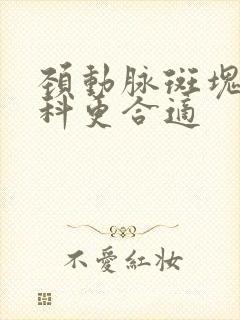 頚動脉斑塊
科更合適
不愛紅妝